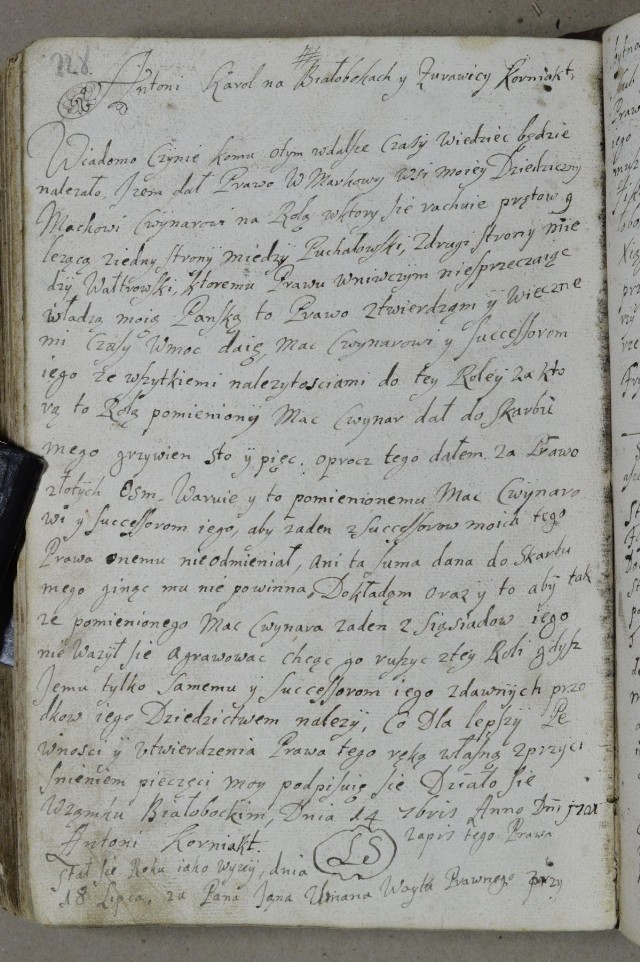 228
Antoni Karol na Białobokach y Zurawicy Korniakt,
Wiadomo Czynie komu otym wdalsze Czasy Wiedziec będzie
nalezało, Izem dał Prawo W Markowy wsi moiey Dziedziczny
Machowi Cwynarowi na Rolą wktory się rachuie prętow 9
lezącą ziedny strony miedzy Puchałowski, zdrugi strony mie
dzy Wałtrowski, ktoremu Prawu wniwczym niesprzeczaiąc
władzą moią Pańską to Prawo ztwierdzam y wieczne
mi Czasy Wmoc daię, Mac Cwynarowi y Successorom
iego Ze wszytkiemi nalezytosciami do tey Roley za kto
rą to Rolą pomieniony Mac Cwynar dał do Skarbu
mego grzywien sto y pięc. oprocz tego dałem za Prawo
złotych osm. Waruie y to pomienionemu Mac Cwynaro
wi y Successorom iego, aby zaden z Successorow moich tego
Prawa onemu nieodmieniał, ani ta suma dana do Skarbu
mego ginąc mu nie powinna, Dokładąm oraz y to aby tak
ze pomienionego Mac Cwynara zaden z Sąsiadow iego
nie Wazył się agrawowac chcąc go ruszyc ztey Roli gdysz
Jemu tylko Samemu y Successorom iego zdawnych prze
dkow iego Dziedzictwem nalezy, Co Dla lepszy Pe
wnosci y Vtwierdzenia Prawa tego ręką własną zprzyci
śnieniem pieczęci moy podpisuię się Działo się
Wzamku Białobockim, Dnia 14 7bris Anno Dni
Antoni Korniakt. LS zapis tego Prawa
stał się Roku iako wyzey, dnia
18 Lipca, za Pana Jana Woyta Prawnego przy